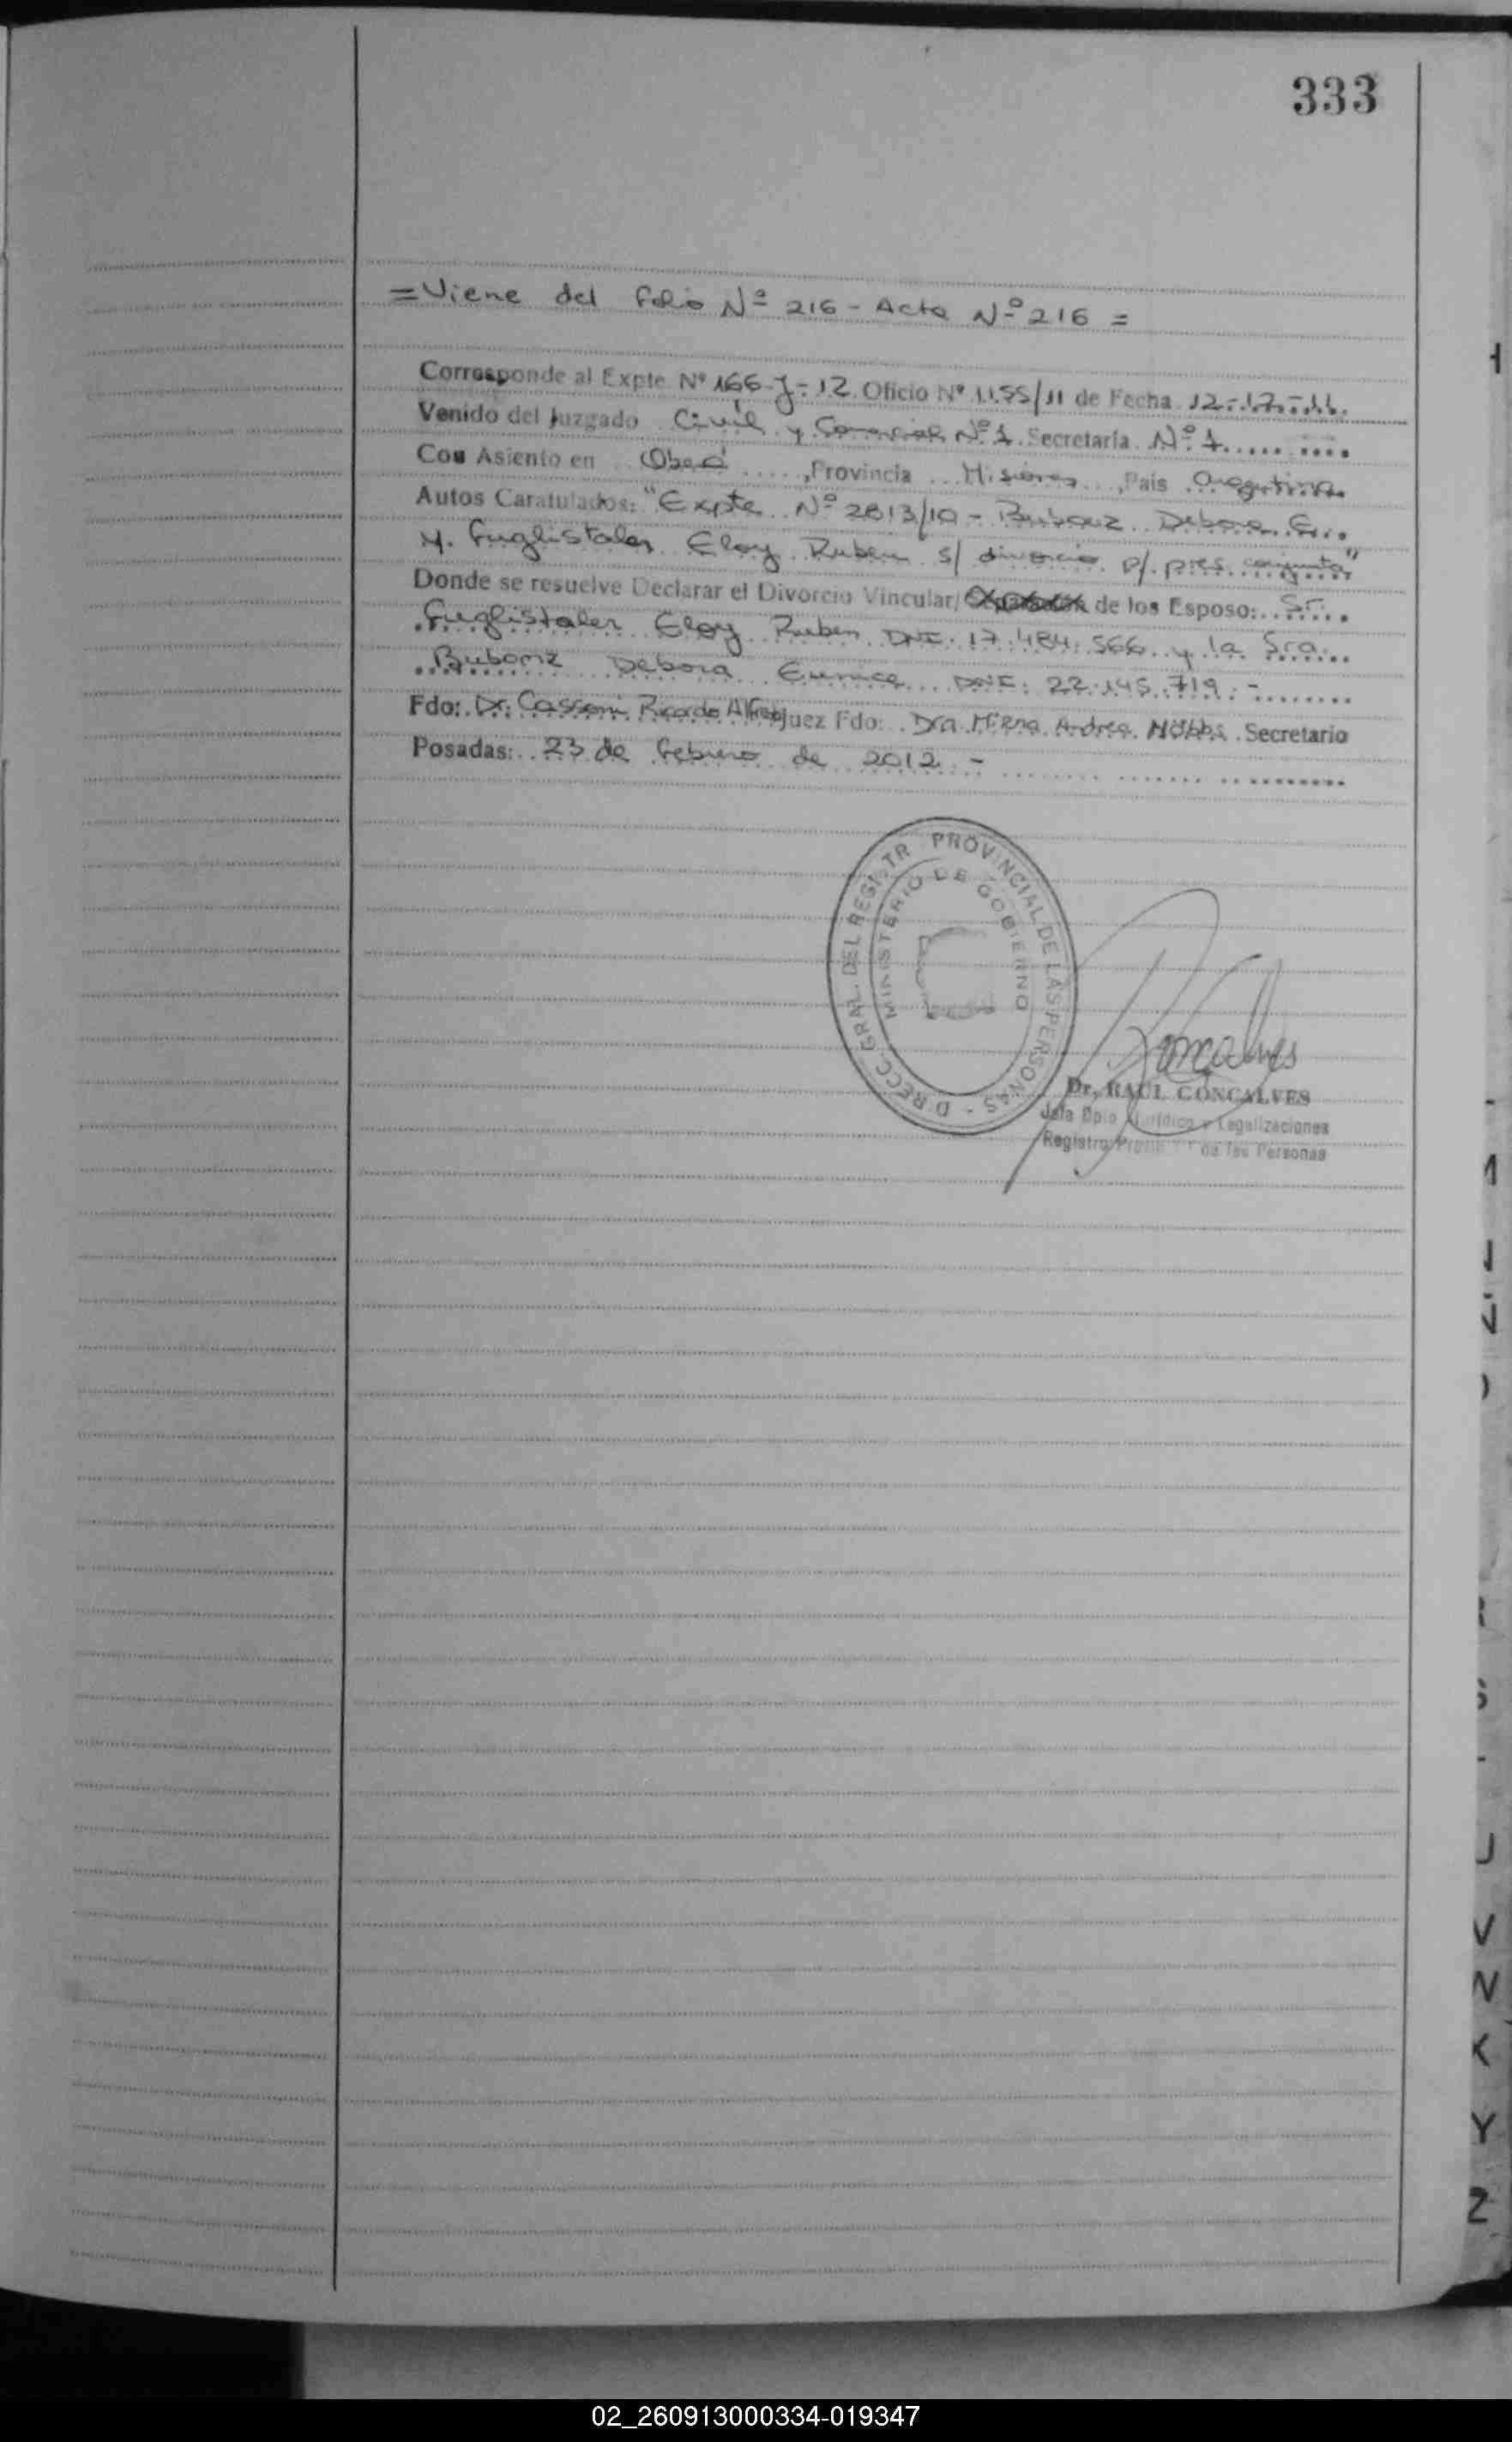 333
= Viene del folio Nº 216 - Acta Nº 216 =
Corresponde al Expte. Nº 166-J-12. Oficio Nº 1155/11 de Fecha 12-12-11.
Venido del Juzgado Civil y Comercial Nº 1. Secretaría Nº 1
Con Asiento en Oberá, Provincia Misiones, País Argentina
Autos Caratulados: "Expte Nº 2813/10 - Debora E.
Y. Fuglistaler Eloy Ruben s/ divorcio p/. pres. conjunta"
Donde se resuelve Declarar el Divorcio Vincular/ de los Esposo: Sr.
Fuglistaler Eloy Ruben DNI: 17.484.566 y la Sra.
Debora Eunice DNI: 22.145.719.-
Fdo: Dr. Cassoni Ricardo Alfredo Juez Fdo: Dra Mirna Andrea Secretario
Posadas: 23 de febrero de 2012.-
DIRECC. GRAL. DEL REGISTR PROVINCIAL DE LAS PERSONAS -
MINISTERIO DE GOBIERNO
Goncalves
Dr. RAUL GONCALVES
Jefe Dpto Jurídico y Legalizaciones
Registro de las Personas
02_260913000334-019347